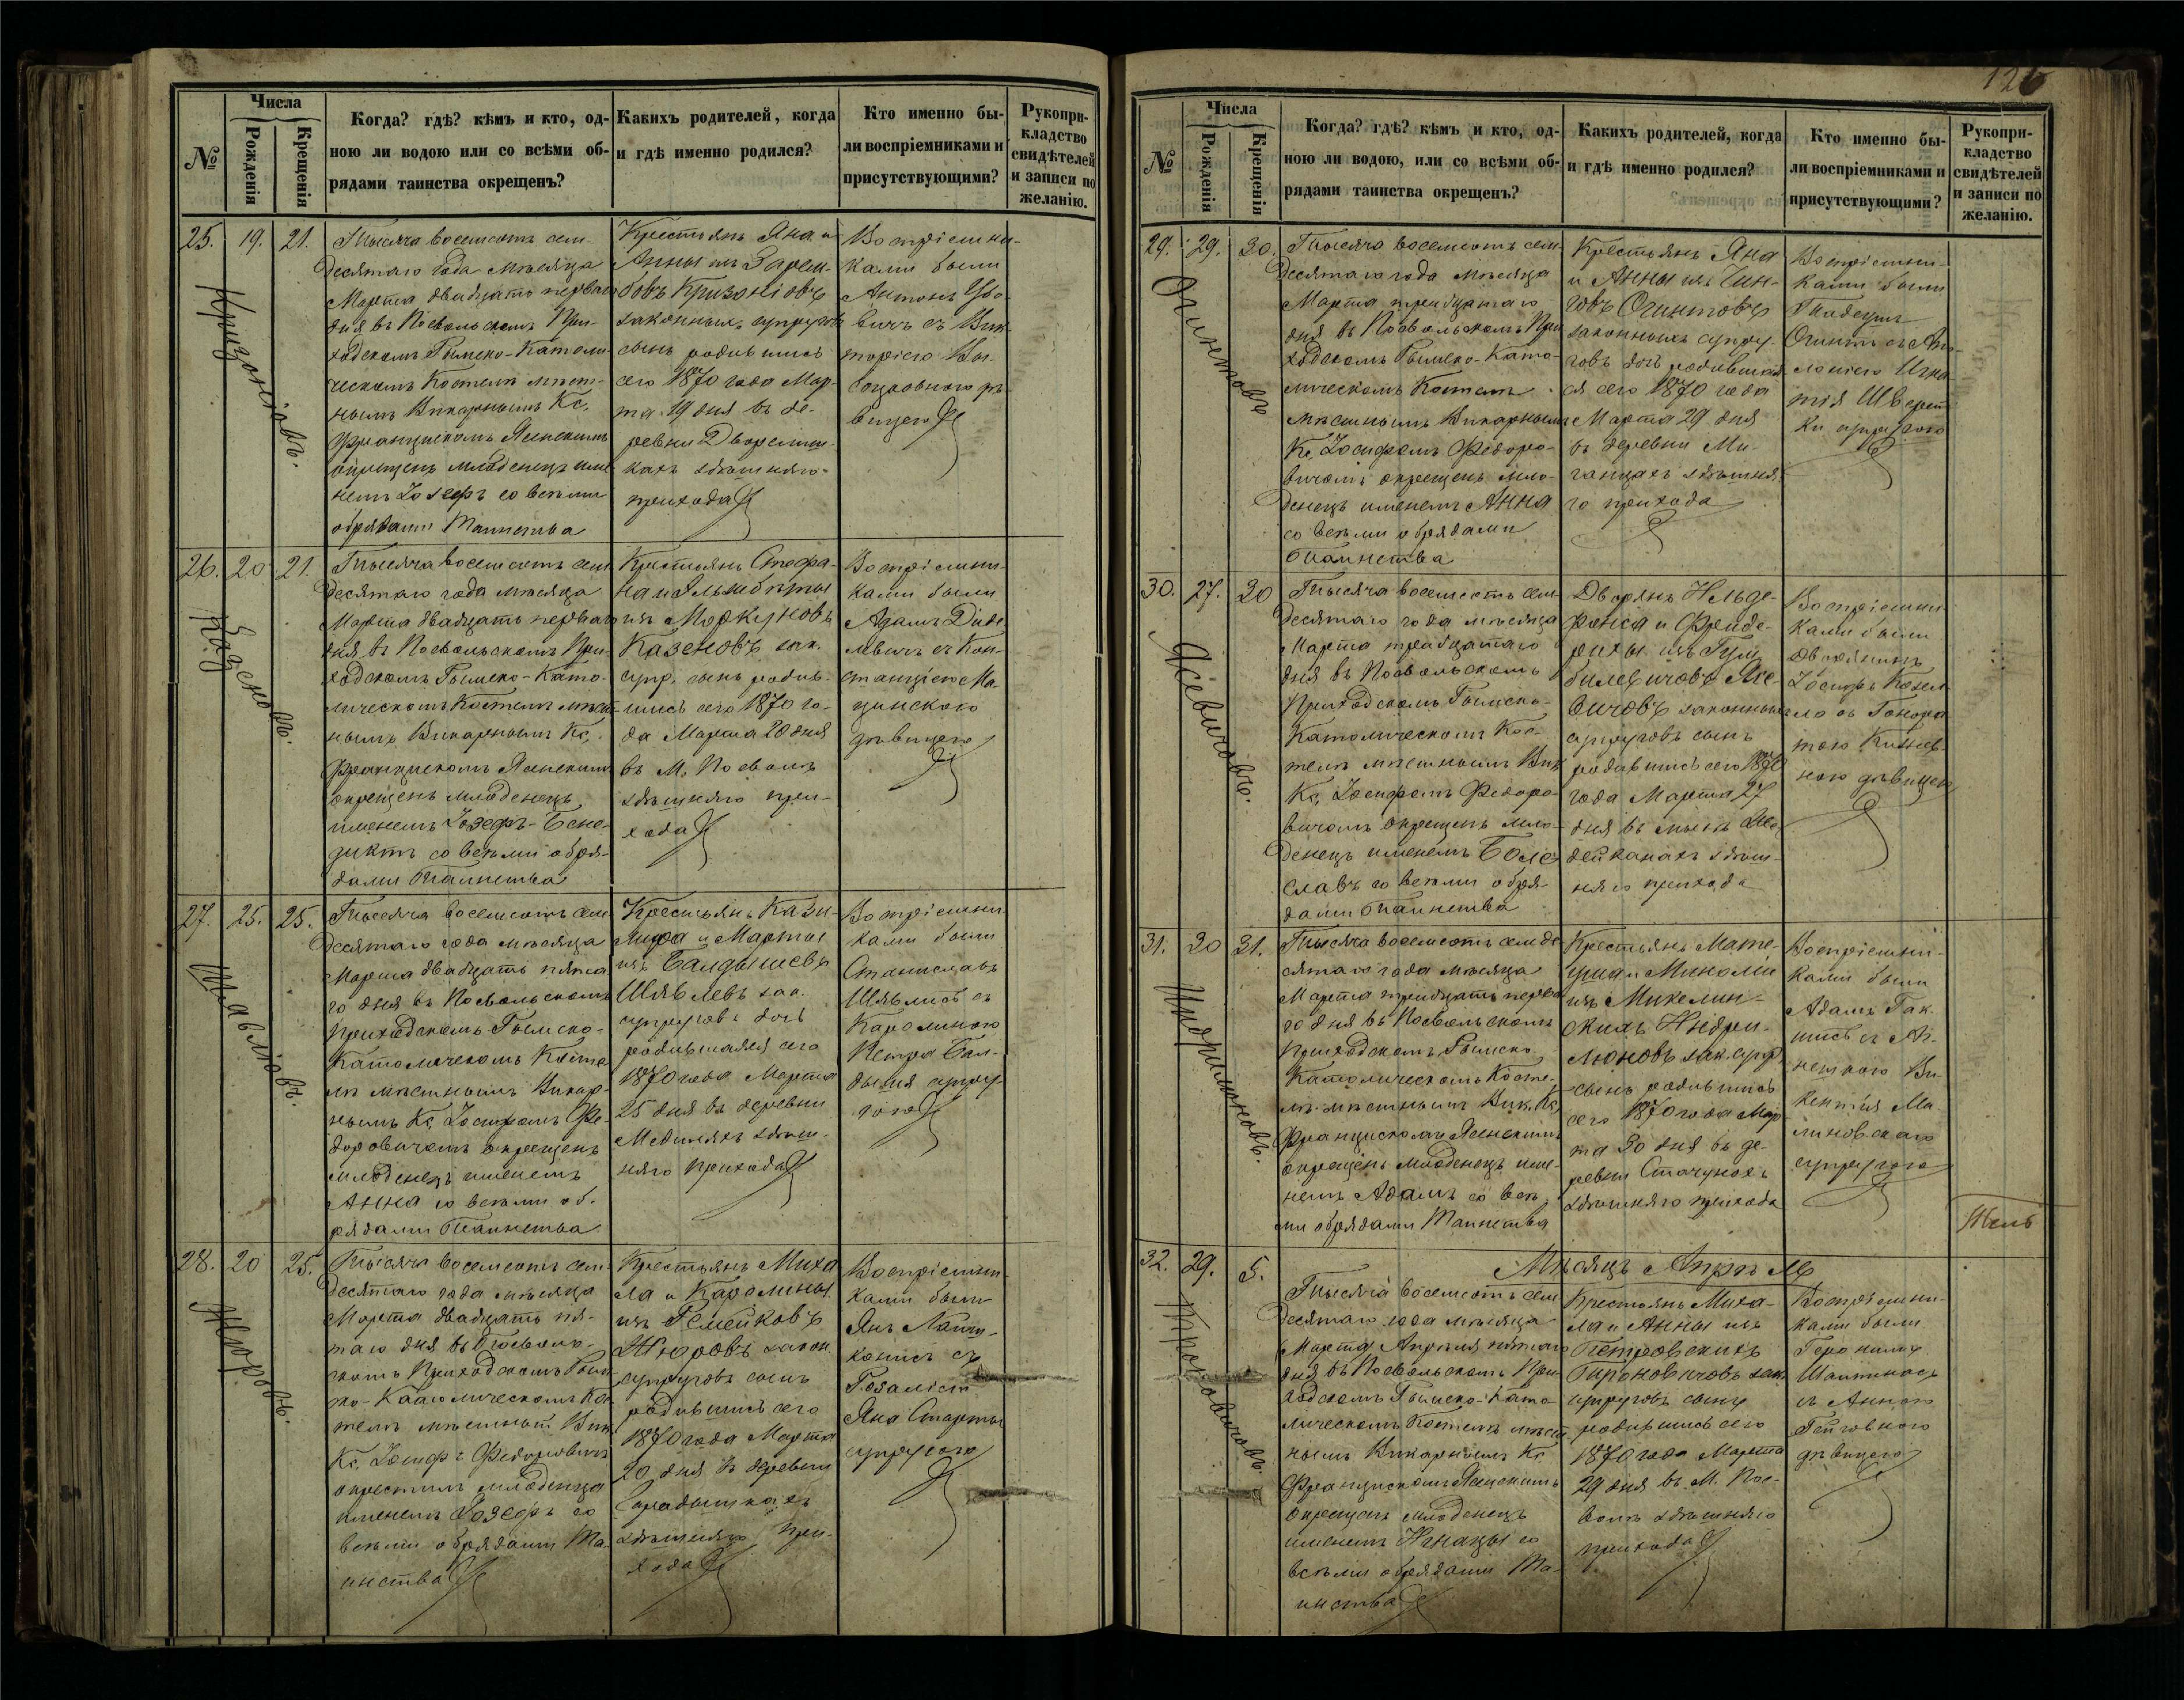 126
№
Числа
Рожденія
Крещенія
Когда? гдѣ? кѣмъ и кто, од-
ною ли водою или со всѣми об-
рядами таинства окрещенъ?
Какихъ родителей, когда
и гдѣ именно родился?
Кто именно бы-
ли воспріемниками и
присутствующими?
Рукопри-
кладство
свидѣтелей
и записи по
желанію.
25.
19.
21.
Тысяча восемсотъ сем-
десятаго года мѣсяца
Марта двадцать перваго
дня въ Посвольскомъ При-
ходскомъ Римско-Католи-
ческомъ Костелѣ мѣст-
нымъ Викарнымъ Кс.
Францискомъ Ясенскимъ
окрещенъ младенецъ име
немъ Іозефъ со всѣми
обрядами Таинства
Крестьянъ Яна и
Анны изъ Зарем-
бовъ
законныхъ супруговъ
сынъ родившись
сего 1870 года Мар-
та 19 дня въ де-
ревни
кахъ здѣшняго
прихода
Воспріемни-
ками были
Антонъ
вичъ съ Вик
торіею
дѣ
вицею
26.
20
21.
Казеновъ.
Тысяча восемсотъ сем
десятаго года мѣсяца
Марта двадцать перваго
дня въ Посвольскомъ При-
ходскомъ Римско-Като-
лическомъ Костелѣ мѣст
нымъ Викарнымъ Кс.
Францискомъ Ясенскимъ
окрещенъ младенецъ
именемъ Іозефъ-Бене-
диктъ со всѣми обря-
дами Таинства
Крестьянъ Стефа-
на и Эльжбеты
изъ Моркуновъ
Казеновъ зак.
супр. сынъ родив-
шись сего 1870 го-
да Марта 20 дня
въ М. Посволѣ
здѣшняго при-
хода
Воспріемни-
ками были
Адамъ
левичъ съ Кон-
станціею Ма-
цинскою
дѣвицею
27.
25.
25.
Шавлювъ.
Тысяча восемсотъ сем
десятаго года мѣсяца
Марта двадцать пята
го дня въ Посвольскомъ
Приходскомъ Римско-
Католическомъ Косте
лѣ мѣстнымъ Викар-
нымъ Кс. Іосифомъ Фе-
доровичемъ окрещенъ
младенецъ именемъ
Анна со всѣми об-
рядами Таинства
Крестьянъ Кази-
мира и Марты
изъ Балдышевъ
Шявлевъ зак.
супруговъ дочь
родившаяся сего
1870 года Марта
25 дня въ деревни
здѣш-
няго прихода
Воспріемни-
ками были
Станиславъ
Шявлисъ съ
Каролиною
Петра Бал-
дыша супру-
гою
28.
20
25.
Жюровъ.
Тысяча восемсотъ сем-
десятаго года мѣсяца
Марта двадцать пя-
таго дня въ Посволь-
скомъ Приходскомъ Рим
ско-Католическомъ Кос
телѣ мѣстный Вик
Кс. Іосифъ Федоровичъ
окрестилъ младенца
именемъ Іозефъ со
всѣми обрядами Та-
инства
Крестьянъ Миха
ла и Каролины
изъ Гемейковъ
Жюровъ закон.
супруговъ сынъ
родившись сего
1870 года Марта
20 дня въ деревни
здѣшняго при-
хода
Воспріемни-
ками были
Янъ
съ
Розаліею
Яна
супругою
№
Числа
Рожденія
Крещенія
Когда? гдѣ? кѣмъ и кто, од-
ною ли водою, или со всѣми об-
рядами таинства окрещенъ?
Какихъ родителей, когда
и гдѣ именно родился?
Кто именно бы-
ли воспріемниками и
присутствующими?
Рукопри-
кладство
свидѣтелей
и записи по
желанію.
29.
29.
30.
Огинтовъ
Тысяча восемсотъ сем-
десятаго года мѣсяца
Марта тридцатаго
дня въ Посвольскомъ При
ходскомъ Римско-Като-
лическомъ Костелѣ
мѣстнымъ Викарнымъ
Кс. Іосифомъ Федоро-
вичемъ окрещенъ мла-
денецъ именемъ Анна
со всѣми обрядами
Таинства
Крестьянъ Яна
и Анны изъ
Огинтовъ
законныхъ супру-
говъ дочь родившая
ся сего 1870 года
Марта 29 дня
въ деревни Ми-
ганцахъ здѣшня-
го прихода
Воспріемни-
ками были
Тадеушъ
Огинтъ съ Апо-
лоніею Игна-
тія
супругою
30.
27.
30
Тысяча восемсотъ сем
десятаго года мѣсяца
Марта тридцатаго
дня въ Посвольскомъ
Приходскомъ Римско-
Католическомъ Кос-
телѣ мѣстнымъ Вик
Кс. Іосифомъ Федоро
вичемъ окрещенъ мла-
денецъ именемъ Боле
славъ со всѣми обря-
дами Таинства
Дворянъ Ильде-
фонса и Фриде-
рихи изъ
законныхъ
супруговъ сынъ
родившись сего 1870
года Марта 27
дня въ
здѣш-
няго прихода
Воспріемни
ками были
дворянинъ
Іосифъ
съ Гонора
тою
дѣвицею
31.
30
31.
Индрилюновъ.
Тысяча восемсотъ семде
сятаго года мѣсяца
Марта тридцать перва
го дня въ Посвольскомъ
Приходскомъ Римско
Католическомъ Косте-
лѣ мѣстнымъ Вик. Кс.
Францискомъ Ясенскимъ
окрещенъ младенецъ име-
немъ Адамъ со всѣ
ми обрядами Таинства
Крестьянъ Мате-
уша и
изъ Микелин-
скихъ Индри-
люновъ зак. супр.
сынъ родившись
сего 1870 года Мар
та 30 дня въ де-
ревни Стачунахъ
здѣшняго прихода
Воспріемни-
ками были
Адамъ
съ
Ви-
кентія Ма-
линовскаго
супругою
Мѣсяцъ Апрѣль
32.
29.
5.
Тысяча восемсотъ сем
десятаго года мѣсяца
Марта Апрѣля пятаго
дня въ Посвольскомъ При-
ходскомъ Римско-Като-
лическомъ Костелѣ мѣст
нымъ Викарнымъ Кс.
Францискомъ Ясенскимъ
окрещенъ младенецъ
именемъ Игнацы со
всѣми обрядами Та-
инства
Крестьянъ Миха-
ла и Анны изъ
Петровскихъ
зак.
супруговъ сынъ
родившись сего
1870 года Марта
29 дня въ М. Пос-
волѣ здѣшняго
прихода
Воспріемни-
ками были
Геронимъ
съ Анною
дѣвицею